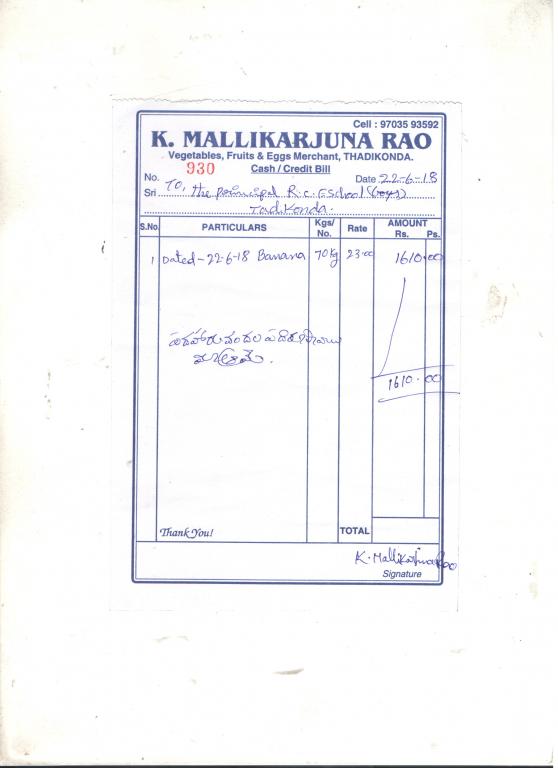 Cell : 97035 93592
K. MALLIKARJUNA RAO
Vegetables, Fruits & Eggs Merchant, THADIKONDA.
930 Cash / Credit Bill
No. Date 22-6-18
Sri To, the principal R.C.E School (boys)
Tadikonda.
S.No. PARTICULARS Kgs/ No. Rate AMOUNT Rs. Ps.
1 Dated-22-6-18 Banana 70kg 23.00 1610.00
పదహారు వందల పది రూపాయలు
మాత్రమే.
1610.00
Thank You! TOTAL
K. Mallikarjuna Rao
Signature